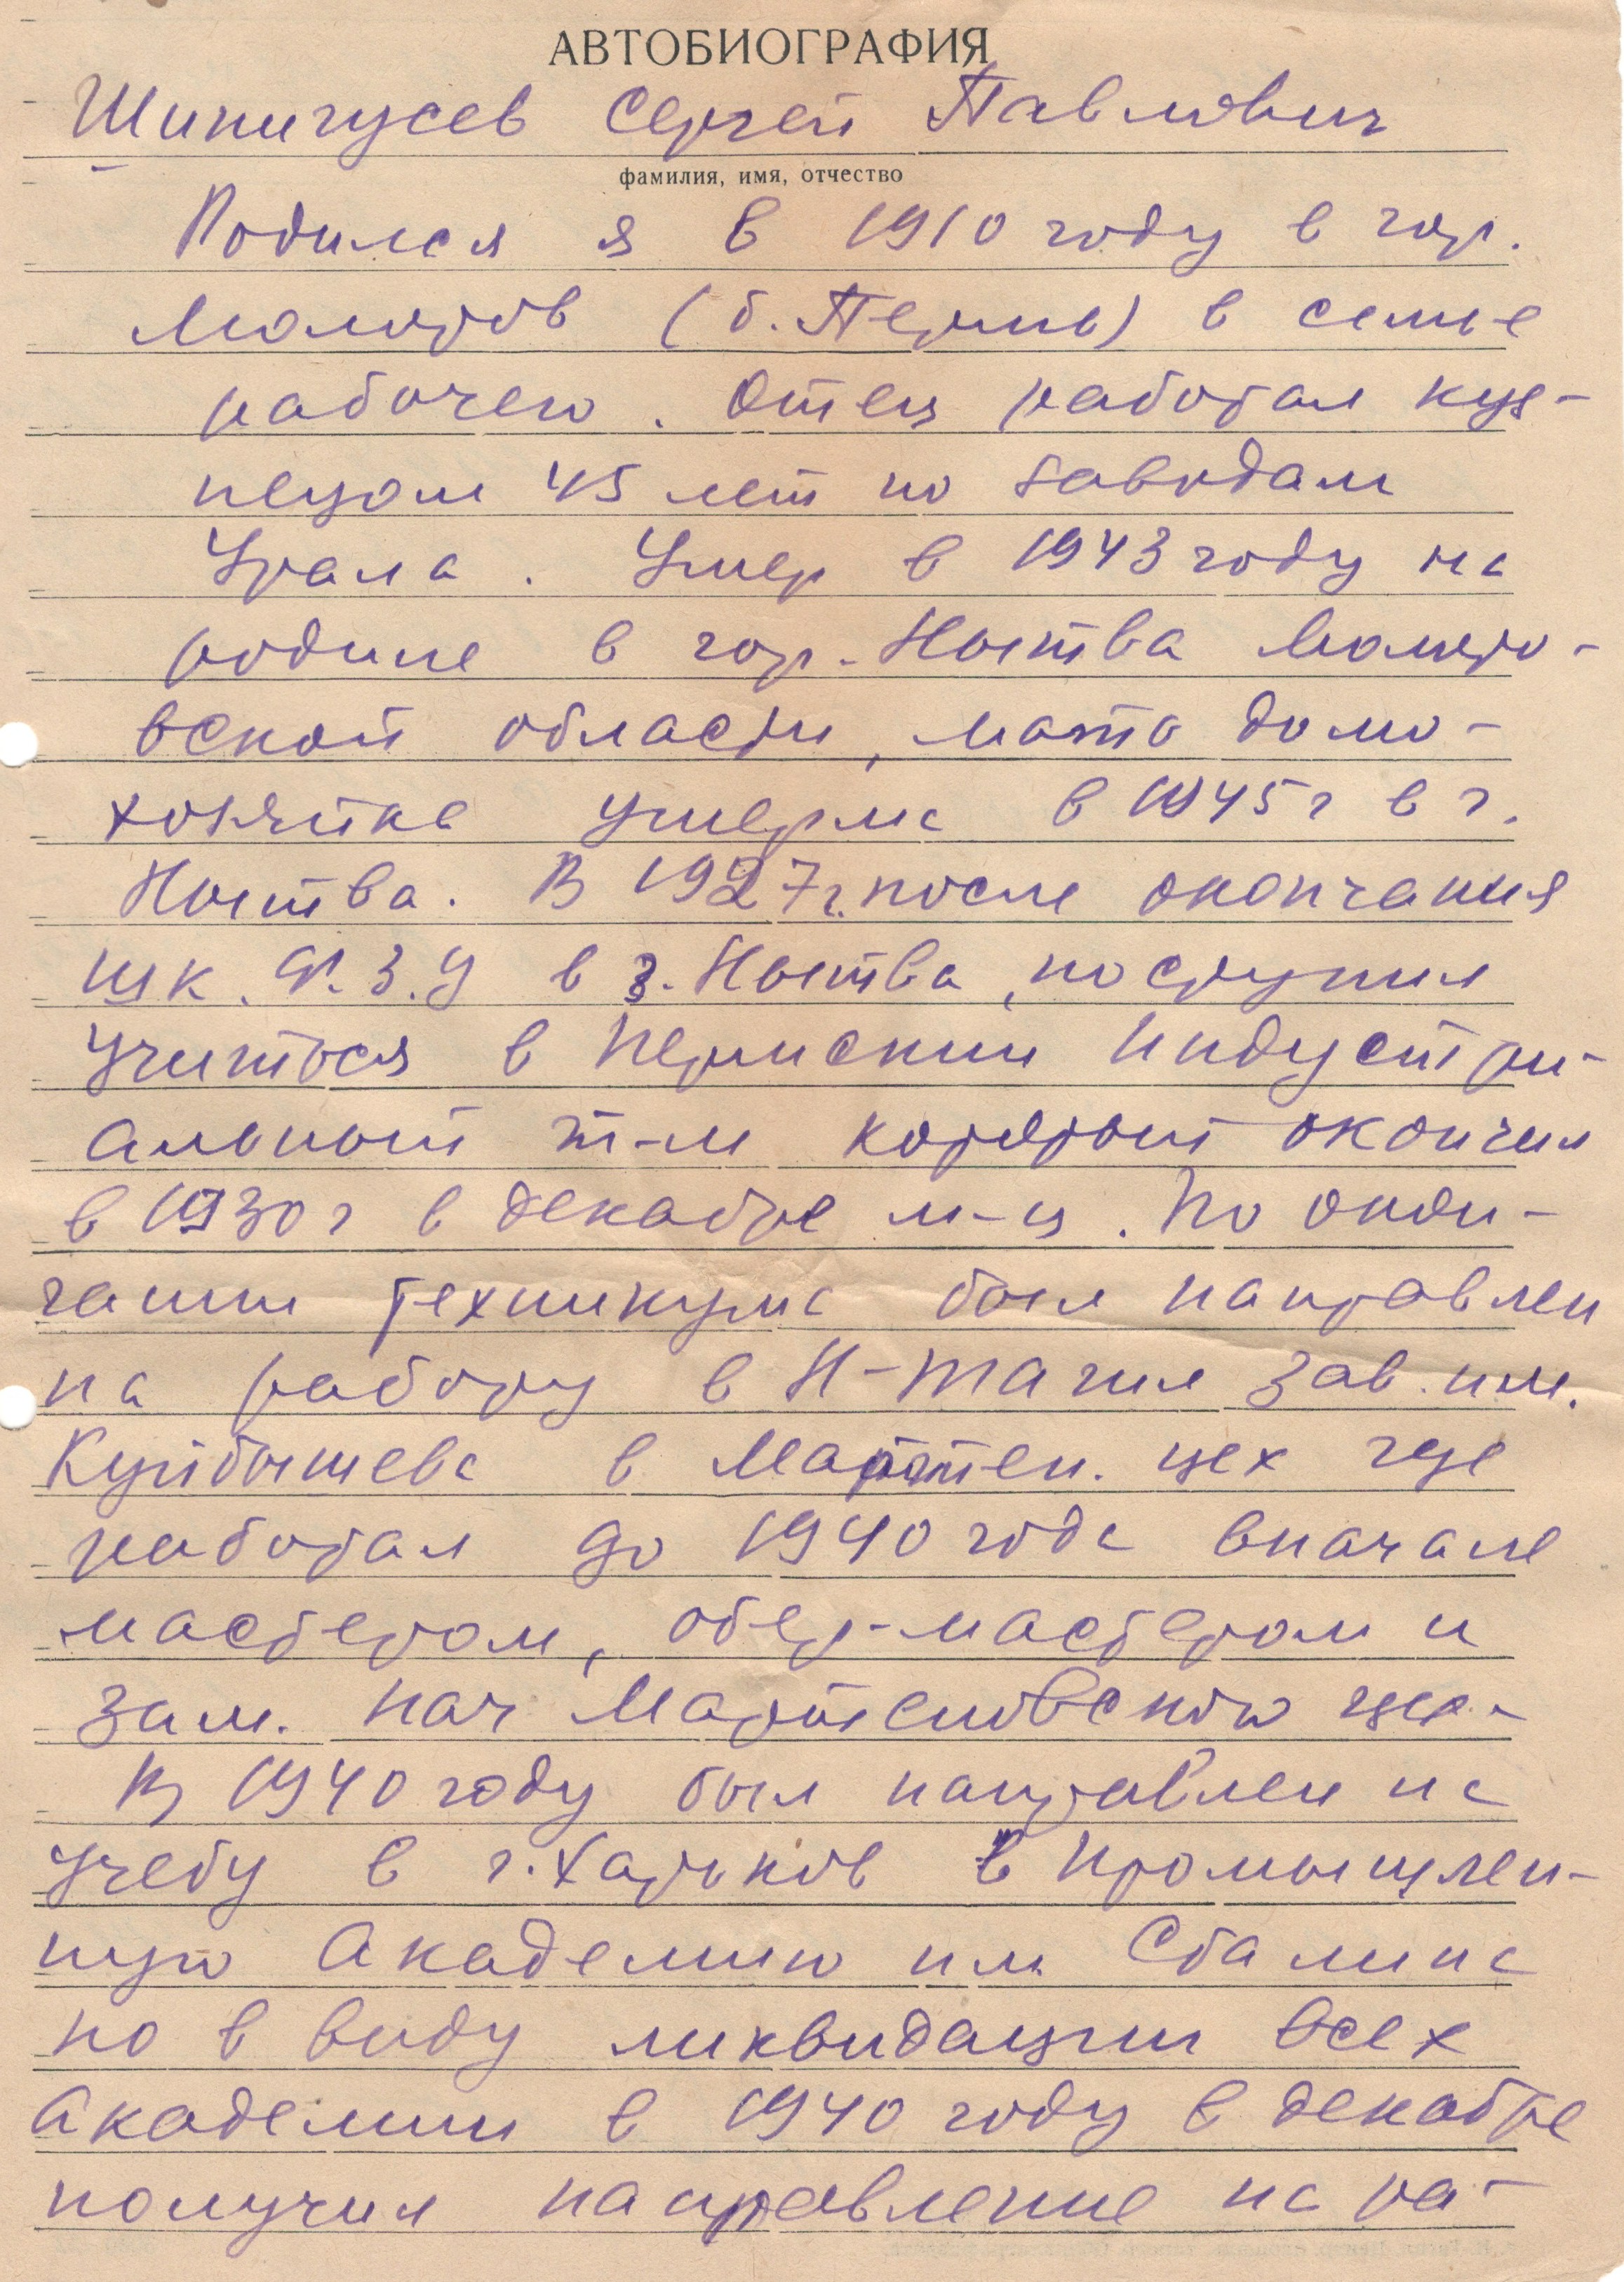 АВТОБИОГРАФИЯ
Шипигусев Сергей Павлович
фамилия, имя, отчество
Родился я в 1910 году в гор.
Молотов (б. Пермь) в семье
рабочего. Отец работал куз-
нецом 45 лет по заводам
Урала. Умер в 1943 году на
родине в гор. Нытва Молото-
вской области, мать домо-
хозяйка умерла в 1945 г в г.
Нытва. В 1927 г. после окончания
шк. Ф.З.У в з. Нытва, поступил
учиться в Пермский Индустри-
альный т-м который окончил
в 1930 г в декабре м-ц. По окон-
чании техникума был направлен
на работу в Н-Тагил зав. им.
Куйбышева в Мартен. цех где
работал до 1940 года вначале
мастером, обер-мастером и
зам. нач Мартеновского цеха
В 1940 году был направлен на
учебу в г. Харьков в Промышлен-
ную Академию им Сталина
но в виду ликвидации всех
Академии в 1940 году в декабре
получил направление на ра-